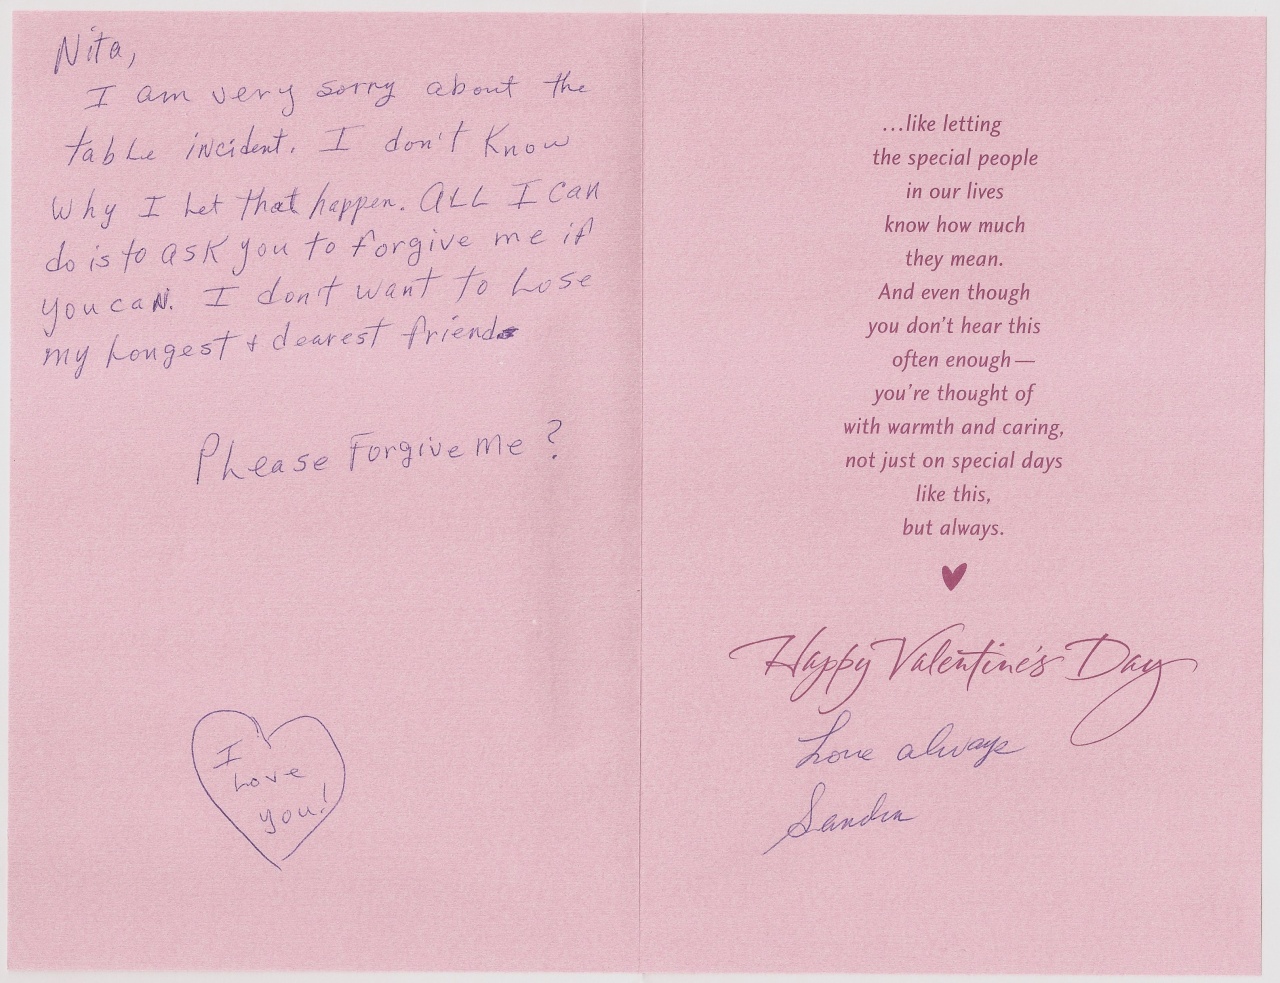 Nita,
I am very sorry about the
table incident. I don't know
why I let that happen. ALL I can
do is to ask you to forgive me if
you can. I don't want to lose
my longest + dearest friend
Please Forgive Me ?
I
Love
you!
...like letting
the special people
in our lives
know how much
they mean.
And even though
you don't hear this
often enough—
you're thought of
with warmth and caring,
not just on special days
like this,
but always.
Happy Valentine's Day
Love always
Sandra